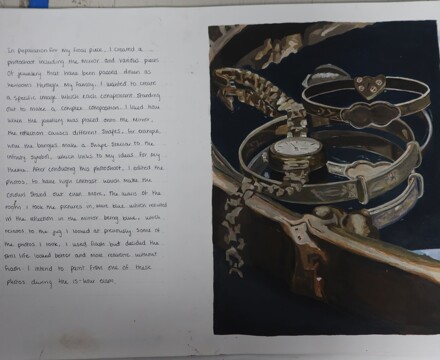 In preparation for my final piece, I created a
photoshoot including the mirror and various pieces
of jewellery that have been passed down as
heirlooms through my family. I wanted to create
a specific image which each component standing
out to make a complex composition. I liked how
when the jewellery was placed onto the mirror,
the reflection creates different shapes, for example,
how the bangles make a shape similar to the
infinity symbol, which links to my ideas for my
theme. After conducting this photoshoot, I edited the
photos to have high contrast which made the
colours stand out even more. The walls of the
room I took the pictures in, were blue which resulted
in the reflection in the mirror being blue which
relates to the jug I looked at previously. Some of
the photos I took, I used flash but decided the
ones looked better and more realistic without
flash. I intend to paint from one of these
photos during the 15-hour exam.